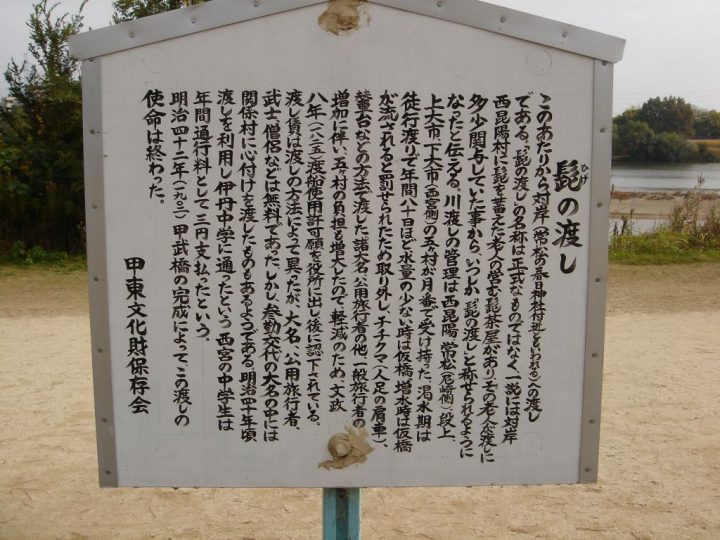 髭の渡し
ひげ
このあたりから対岸(常松の春日神社付近といわれる)への渡し
である。「髭の渡し」の名称は正式なものではなく一説には対岸
西昆陽村に髭を蓄えた老人の営む髭茶屋があり、その老人が渡しに
多少関与していた事から、いつしか「髭の渡し」と称せられるように
なったと伝える。川渡しの管理は西昆陽、常松(尼崎側)段上、
上大市、下大市(西宮側)の五村が月番で受け持った。渇水期は
徒行渡りで年間八十日ほど水量の少ない時は仮橋、増水時は仮橋
が流されると罰せられたため取り外し、チチクマ(人足の肩車)、
輦台などの方法で渡した。諸大名、公用旅行者の他、一般旅行者の
増加に伴い、五ヶ村の負担も増大したので、軽減のため、文政
八年(一八二五)渡船御使用許可願を役所に出し後に認下されている。
渡し賃は渡しの方法によって異ったが、大名、公用旅行者、
武士、僧侶などは無料であった。しかし、参勤交代の大名の中には
関係村に心付けを渡したものもあるようである。明治四十年頃
渡しを利用し伊丹中学に通ったという西宮の中学生は
年間通行料として三円支払ったという。
明治四十二年(一九〇三)甲武橋の完成によって、この渡しの
使命は終わった。
甲東文化財保存会